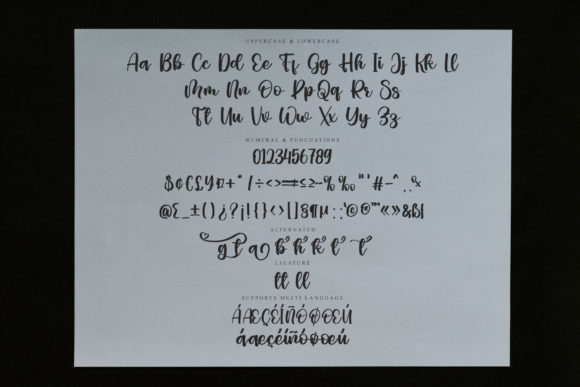 UPPERCASE & LOWERCASE
Aa Bb Cc Dd Ee Ff Gg Hh Ii Jj Kk Ll
Mm Nn Oo Pp Qq Rr Ss
Tt Uu Vv Ww Xx Yy Zz
NUMERAL & PUNCUATIONS
0123456789
$¢£¥¤+*/÷<>=≠≤≥~%‰"'#-^
@Σ_±()¿?¡!{}<>[]§¶µ::'©®™«»&ß|
ALTERNATED
y t a b h k l t
LIGATURE
tt ll
SUPPORTS MULTI LANGUAGE
ÁÆÇÉÍÑÓØŒÚ
áæçéíñóøœú